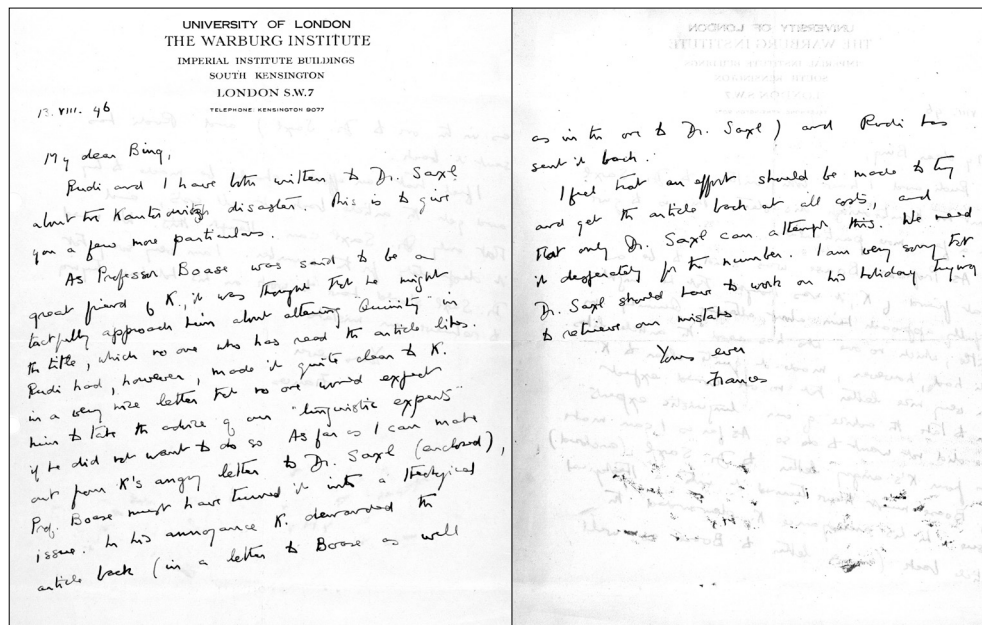 UNIVERSITY OF LONDON
THE WARBURG INSTITUTE
IMPERIAL INSTITUTE BUILDINGS
SOUTH KENSINGTON
LONDON S.W.7
TELEPHONE: KENSINGTON 9077
13. VIII. 46
My dear Bing,
Rudi and I have both written to Dr. Saxl
about the Kantorowicz disaster. This is to give
you a few more particulars.
As Professor Boase was said to be a
great friend of K, it was thought that he might
tactfully approach him about altering "Quinity" in
the title, which no one who has read the article likes.
Rudi had, however, made it quite clear to K.
in a very nice letter that no one would expect
him to take the advice of our "linguistic experts"
if he did not want to do so. As far as I can make
out from K's angry letter to Dr. Saxl (enclosed),
Prof. Boase must have turned it into a theological
issue. In his annoyance K. demanded the
article back (in a letter to Boase as well
as in the one to Dr. Saxl) and Rudi has
sent it back.
I feel that an effort should be made to try
and get the article back at all costs, and
that only Dr. Saxl can attempt this. We need
it desperately for the number. I am very sorry that
Dr. Saxl should have to work on his holiday trying
to retrieve our mistake
Yours ever
Frances